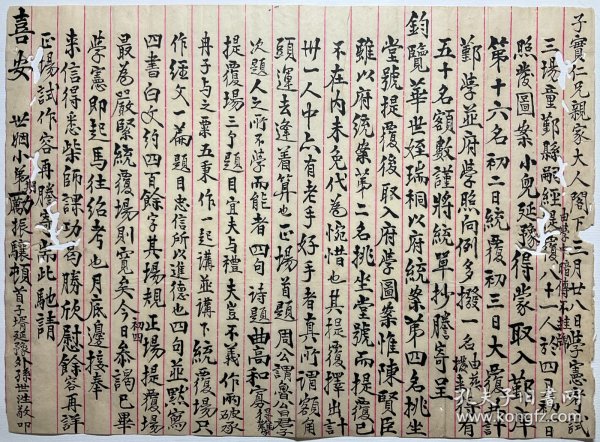 子實仁兄親家大人閣下三月廿八日學憲考試
三場童鄞縣獻經是覆八十一人於四
照發圖案小兒延豫得蒙取入鄞門
第十六名初二日統覆初三日大覆計
鄞學並府學照向例多撥一名
五十名額數謹將統單抄謄寄呈
鈞覽華世姪瑞桐以府統案第四名挑坐
堂號提覆後取入府學圖案惟陳賢臣
雖以府統案第二名挑坐堂號而提覆已
不在內未免代為惋惜也其提覆擇出計
卅一人中亦有老手好手者真所謂額角
頭運去逢着算也正場首題周公謂魯公曰君子
次題人之所不學而能者四句詩題曲高和寡
提覆場三子題目宜夫與禮夫豈不義作兩破承
冉子與之粟五秉作一起講並講下統覆場只
作經文一篇題目忠信所以進德也四句並默寫
四書白文約四百餘字其場規正場提覆場
最為嚴緊統覆場則寬矣今日參謁已畢
初四
學憲即起馬往紹考也月底邊接奉
來信得悉柴師課功勻勝欣慰餘容再詳
正場試作容再謄寄耑此馳請
喜安
世姻小弟勵振驤頓首子壻延豫外孫世桂敬叩